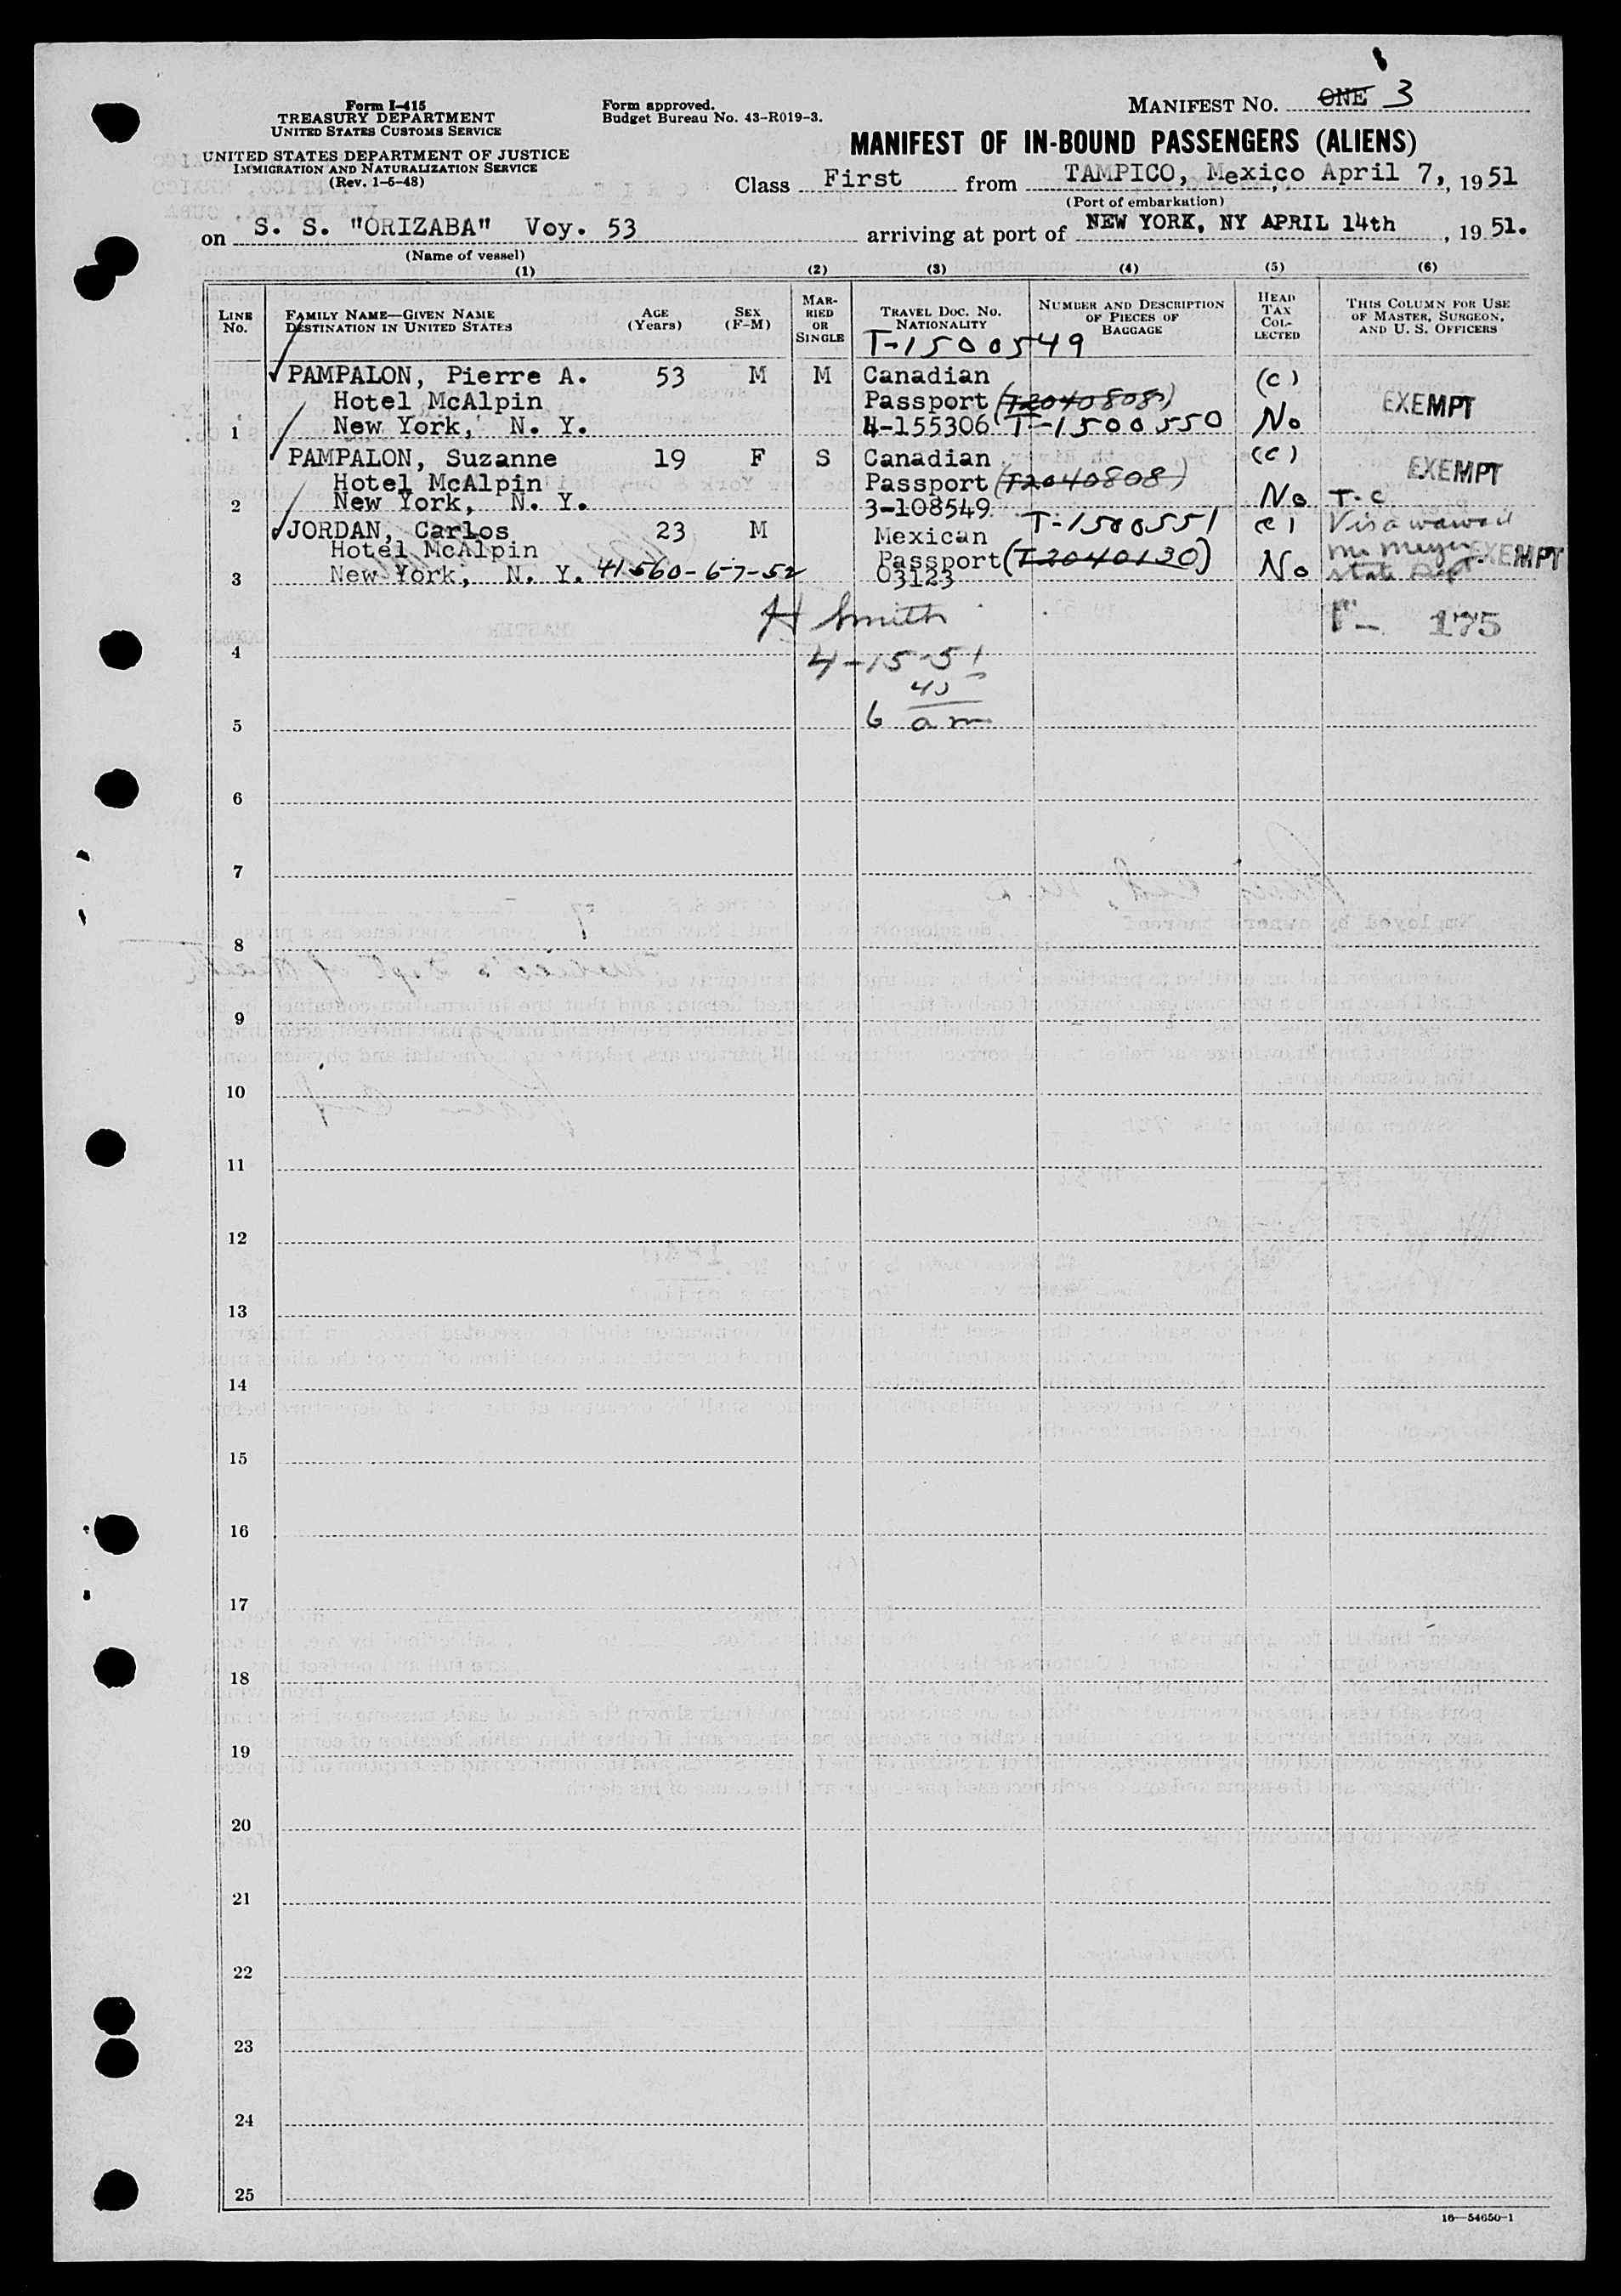 MANIFEST NO. ONE 3
Form I-415
TREASURY DEPARTMENT
UNITED STATES CUSTOMS SERVICE
UNITED STATES DEPARTMENT OF JUSTICE
IMMIGRATION AND NATURALIZATION SERVICE
(Rev. 1-6-48)
Form approved.
Budget Bureau No. 43-R019-3.
MANIFEST OF IN-BOUND PASSENGERS (ALIENS)
Class First from TAMPICO, Mexico April 7, 1951
(Port of embarkation)
on S. S. "ORIZABA" Voy. 53 arriving at port of NEW YORK, NY APRIL 14th, 1951.
(Name of vessel)
(1) (2) (3) (4) (5) (6)
LINE No.
FAMILY NAME—GIVEN NAME
DESTINATION IN UNITED STATES
AGE (Years)
SEX (F-M)
MARRIED OR SINGLE
TRAVEL DOC. NO.
NATIONALITY
NUMBER AND DESCRIPTION OF PIECES OF BAGGAGE
HEAD TAX COLLECTED
THIS COLUMN FOR USE OF MASTER, SURGEON, AND U. S. OFFICERS
T-1500549
PAMPALON, Pierre A. 53 M M Canadian (c)
Hotel McAlpin Passport (T2040808) EXEMPT
1 New York, N. Y. 4-155306 T-1500550 No
PAMPALON, Suzanne 19 F S Canadian (c)
Hotel McAlpin Passport (T2040808) EXEMPT
2 New York, N. Y. 3-108549 No T-C
JORDAN, Carlos 23 M Mexican T-1500551 (c) Visa waived
Hotel McAlpin Passport (T2040130) Mr Meyer EXEMPT
3 New York, N. Y. 41560-6-7-52 03123 No State Dept
H Smith T- 175
4 4-15-51
5 6 45 am
6
7
8
9
10
11
12
13
14
15
16
17
18
19
20
21
22
23
24
25
16—54650-1